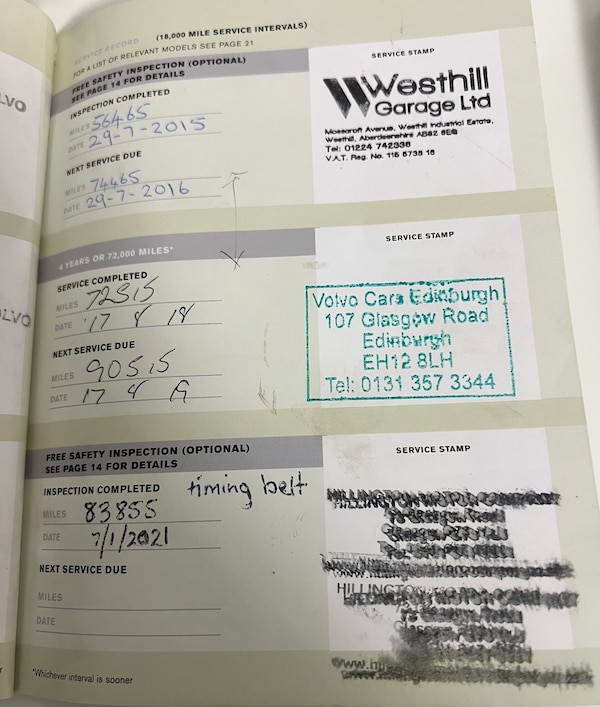 SERVICE RECORD (18,000 MILE SERVICE INTERVALS)
FOR A LIST OF RELEVANT MODELS SEE PAGE 21
FREE SAFETY INSPECTION (OPTIONAL)
SEE PAGE 14 FOR DETAILS
INSPECTION COMPLETED
MILES 56465
DATE 29-7-2015
NEXT SERVICE DUE
MILES 74465
DATE 29-7-2016
SERVICE STAMP
Westhill
Garage Ltd
Mosscroft Avenue, Westhill Industrial Estate,
Westhill, Aberdeenshire AB32 6EQ
Tel: 01224 742338
V.A.T. Reg. No. 115 6738 16
4 YEARS OR 72,000 MILES*
SERVICE COMPLETED
MILES 72515
DATE 17 4 18
NEXT SERVICE DUE
MILES 90515
DATE 17 4
SERVICE STAMP
Volvo Cars Edinburgh
107 Glasgow Road
Edinburgh
EH12 8LH
Tel: 0131 357 3344
FREE SAFETY INSPECTION (OPTIONAL)
SEE PAGE 14 FOR DETAILS
INSPECTION COMPLETED timing belt
MILES 83855
DATE 7/1/2021
NEXT SERVICE DUE
MILES
DATE
SERVICE STAMP
HILLINGTON
*Whichever interval is sooner
LVO
LVO